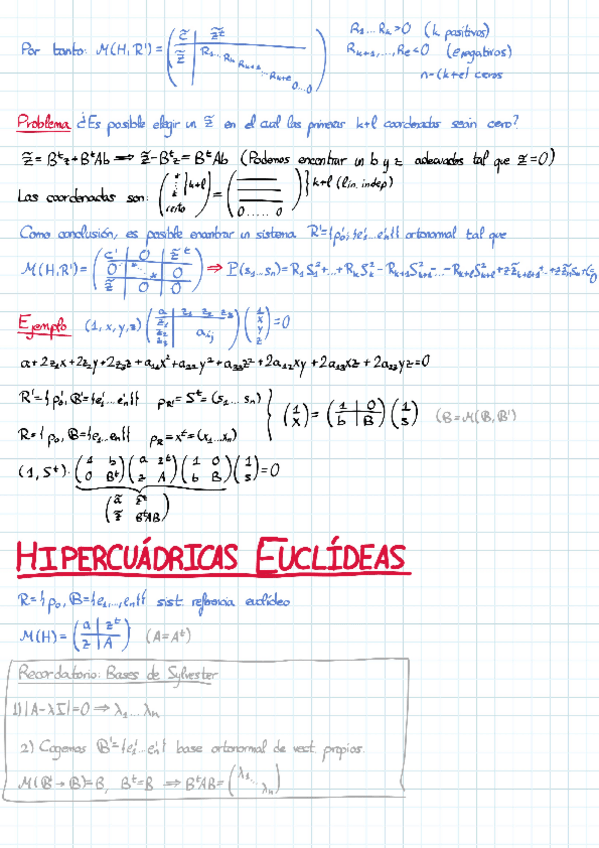 Por tanto: M(H,R')= ( c̃ | z̃ᵗ / z̃ | R₁...Rₖ Rₖ₊₁...Rₖ₊ₑ 0...0 ) R₁...Rₖ>0 (k positivos)
Rₖ₊₁,...,Rₑ<0 (l negativos)
n-(k+l) ceros
Problema ¿Es posible elegir un z̃ en el cual las primeras k+l coordenadas sean cero?
z̃=Bᵗz+BᵗAb ⟹ z̃-Bᵗz=BᵗAb (Podemos encontrar un b y z adecuados tal que z̃=0)
Las coordenadas son: ( * : * }k+l / cierto ) = ( 0.....0 ) }k+l (lin. indep)
Como conclusión, es posible encontrar un sistema R'={p₀'; {e₁'...eₙ'}} ortonormal tal que
M(H,R')= ( c' | 0 | z̃ᵗ / 0 | *...* | 0 / z̃ | 0 | 0 ) ⇒ P(s₁...sₙ)=R₁S₁²+...+RₖSₖ²-Rₖ₊₁S²ₖ₊₁-...-Rₖ₊ₑS²ₖ₊ₑ+2z̃ₖ₊ₑ₊₁...+2z̃ₙSₙ+c=0
Ejemplo (1,x,y,z) ( a | z₁ z₂ z₃ / z₁ z₂ z₃ | aᵢⱼ ) ( 1 x y z ) =0
a+2z₁x+2z₂y+2z₃z+a₁₁x²+a₂₂y²+a₃₃z²+2a₁₂xy+2a₁₃xz+2a₂₃yz=0
R'={p₀', B'={e₁'...eₙ'}} p_R'=Sᵗ=(s₁...sₙ)
R={p₀, B={e₁...eₙ}} p_R=xᵗ=(x₁...xₙ) } (1 / x) = ( 1 | 0 / b | B ) (1 / s) (B=M(B,B')
(1,Sᵗ)·( 1 b / 0 Bᵗ )( a zᵗ / z A )( 1 0 / b B )( 1 / s )=0
( ã z̃ᵗ / z̃ BᵗAB )
HIPERCUÁDRICAS EUCLÍDEAS
R={p₀, B={e₁,...,eₙ}} sist. referencia euclídeo
M(H)= ( a | zᵗ / z | A ) (A=Aᵗ)
Recordatorio: Bases de Sylvester
1) |A-λI|=0 ⇒ λ₁...λₙ
2) Cogemos B'={e₁'...eₙ'} base ortonormal de vect. propios.
M(B'→B)=B, Bᵗ=B ⟹ BᵗAB= ( λ₁ ... λₙ )